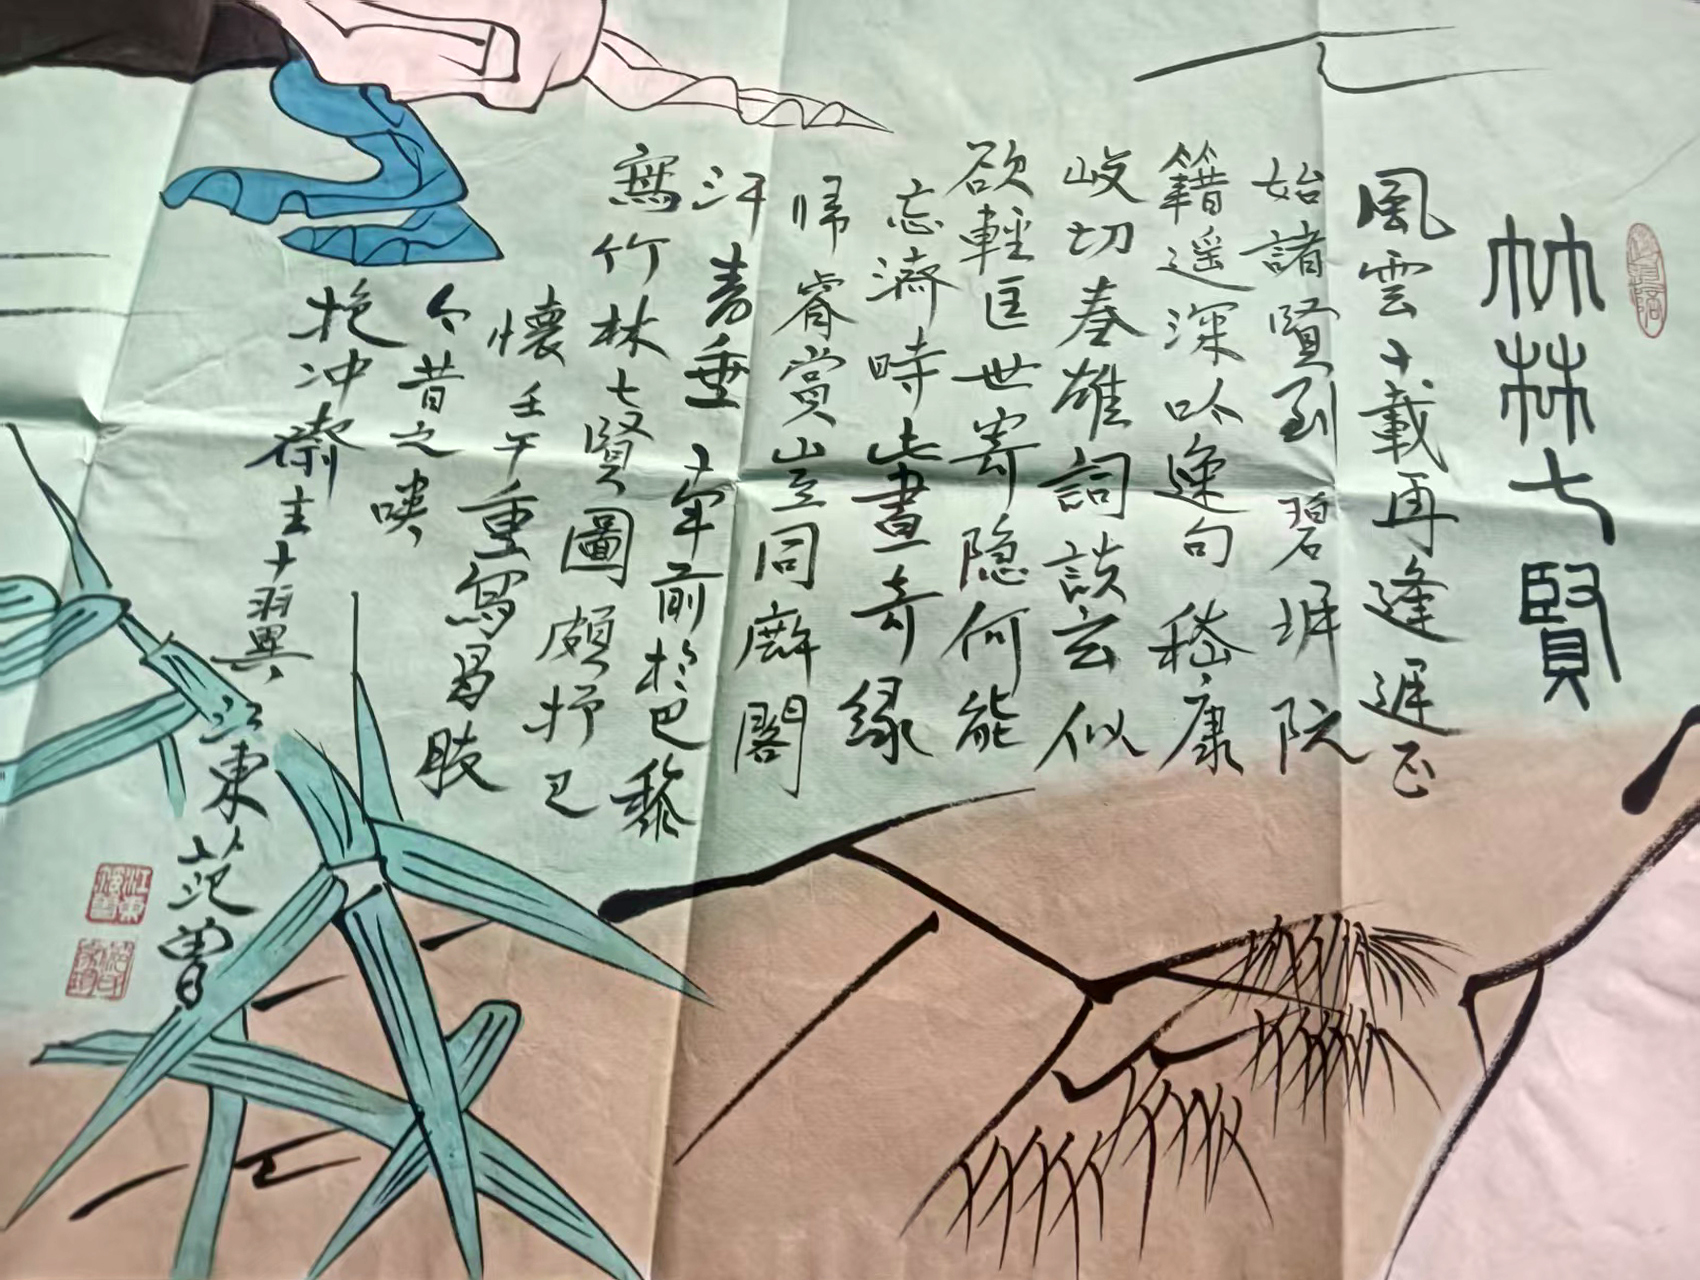 竹林七賢
風雲十載再逢遲正
始諸賢到碧墀阮
籍遥深吟逸句嵇康
峻切奏雄詞談玄似
欲輕匡世寄隐何能
忘濟時此畫奇緣
歸睿賞豈同廨閣
汗青垂 十年前於巴黎
寫竹林七賢圖頗抒己
懷壬午重寫曷肢
今昔之嘆
抱冲齋主十翼
江東范曾